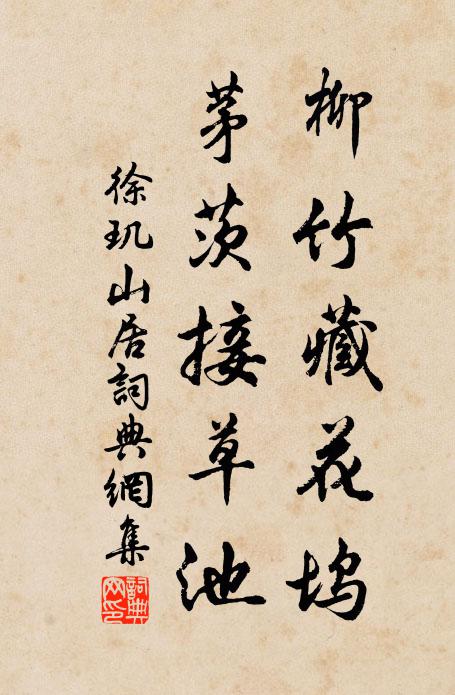 柳竹藏花坞
茅茨接草池
徐玑山居詞典網集
詞典網印